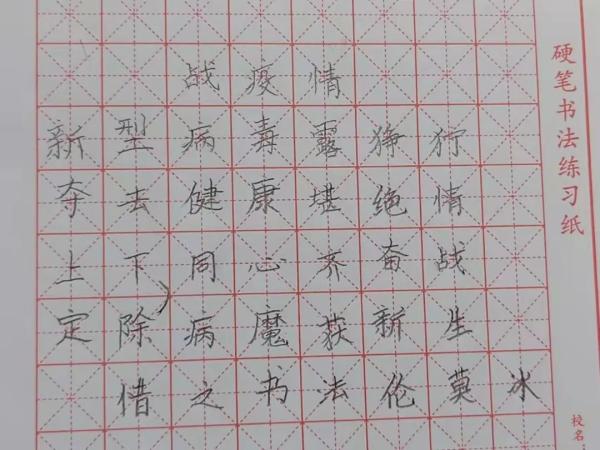 战疫情
新型病毒露狰狞
夺去健康堪绝情
上下同心齐奋战
定除病魔获新生
借之书法伦莫冰
硬笔书法练习纸
校名